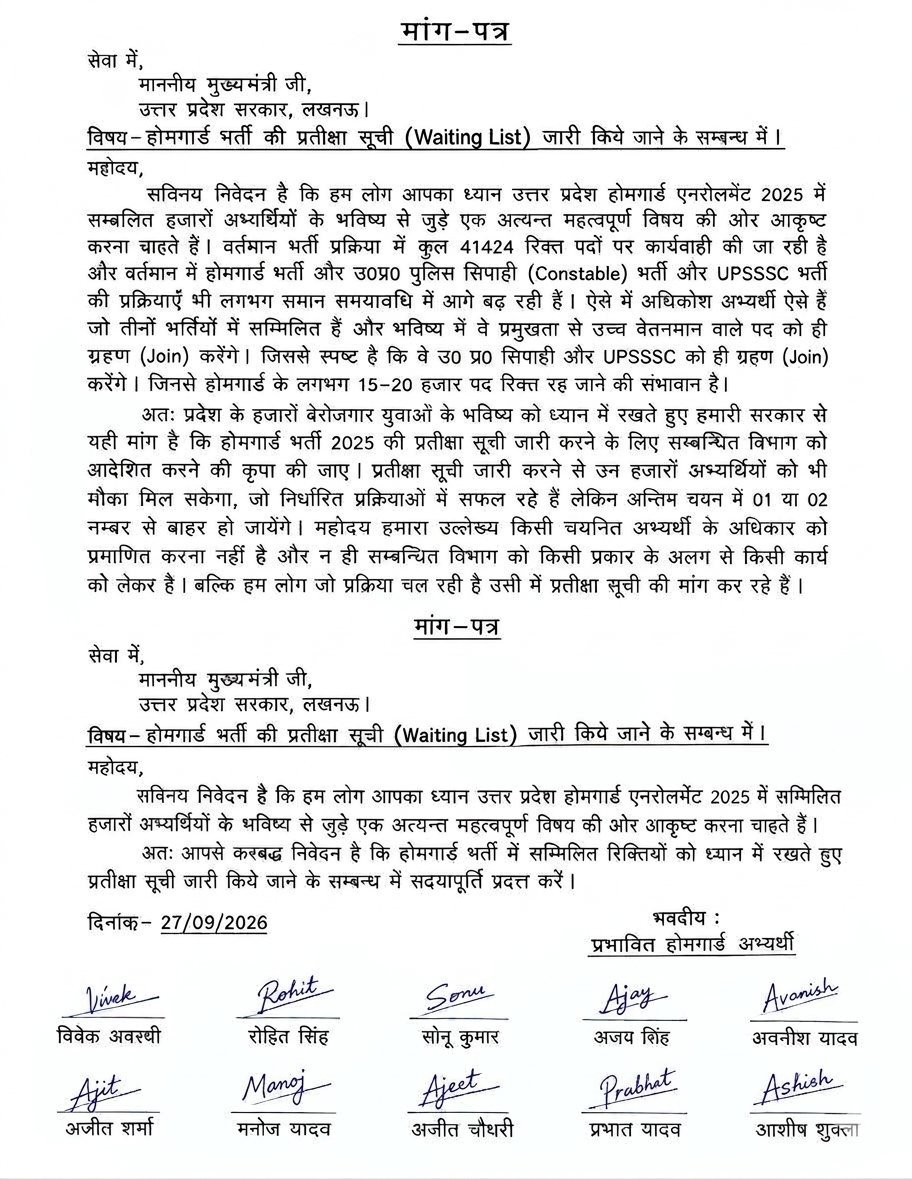 मांग-पत्र
सेवा में,
माननीय मुख्यमंत्री जी,
उत्तर प्रदेश सरकार, लखनऊ।
विषय- होमगार्ड भर्ती की प्रतीक्षा सूची (Waiting List) जारी किये जाने के सम्बन्ध में।
महोदय,
सविनय निवेदन है कि हम लोग आपका ध्यान उत्तर प्रदेश होमगार्ड एनरोलमेंट 2025 में
सम्बलित हजारों अभ्यर्थियों के भविष्य से जुड़े एक अत्यन्त महत्वपूर्ण विषय की ओर आकृष्ट
करना चाहते हैं। वर्तमान भर्ती प्रक्रिया में कुल 41424 रिक्त पदों पर कार्यवाही की जा रही है
और वर्तमान में होमगार्ड भर्ती और उ0प्र0 पुलिस सिपाही (Constable) भर्ती और UPSSSC भर्ती
की प्रक्रियाएँ भी लगभग समान समयावधि में आगे बढ़ रही हैं। ऐसे में अधिकोश अभ्यर्थी ऐसे हैं
जो तीनों भर्तियों में सम्मिलित हैं और भविष्य में वे प्रमुखता से उच्च वेतनमान वाले पद को ही
ग्रहण (Join) करेंगे। जिससे स्पष्ट है कि वे उ0 प्र0 सिपाही और UPSSSC को ही ग्रहण (Join)
करेंगे। जिनसे होमगार्ड के लगभग 15-20 हजार पद रिक्त रह जाने की संभावान है।
अतः प्रदेश के हजारों बेरोजगार युवाओं के भविष्य को ध्यान में रखते हुए हमारी सरकार से
यही मांग है कि होमगार्ड भर्ती 2025 की प्रतीक्षा सूची जारी करने के लिए सम्बन्धित विभाग को
आदेशित करने की कृपा की जाए। प्रतीक्षा सूची जारी करने से उन हजारों अभ्यर्थियों को भी
मौका मिल सकेगा, जो निर्धारित प्रक्रियाओं में सफल रहे हैं लेकिन अन्तिम चयन में 01 या 02
नम्बर से बाहर हो जायेंगे। महोदय हमारा उल्लेख्य किसी चयनित अभ्यर्थी के अधिकार को
प्रमाणित करना नहीं है और न ही सम्बन्धित विभाग को किसी प्रकार के अलग से किसी कार्य
को लेकर है। बल्कि हम लोग जो प्रक्रिया चल रही है उसी में प्रतीक्षा सूची की मांग कर रहे हैं।
मांग-पत्र
सेवा में,
माननीय मुख्यमंत्री जी,
उत्तर प्रदेश सरकार, लखनऊ।
विषय- होमगार्ड भर्ती की प्रतीक्षा सूची (Waiting List) जारी किये जाने के सम्बन्ध में।
महोदय,
सविनय निवेदन है कि हम लोग आपका ध्यान उत्तर प्रदेश होमगार्ड एनरोलमेंट 2025 में सम्मिलित
हजारों अभ्यर्थियों के भविष्य से जुड़े एक अत्यन्त महत्वपूर्ण विषय की ओर आकृष्ट करना चाहते हैं।
अतः आपसे करबद्ध निवेदन है कि होमगार्ड भर्ती में सम्मिलित रिक्तियों को ध्यान में रखते हुए
प्रतीक्षा सूची जारी किये जाने के सम्बन्ध में सदयापूर्ति प्रदत्त करें।
दिनांक- 27/09/2026
भवदीय :
प्रभावित होमगार्ड अभ्यर्थी
Vivek Rohit Sonu Ajay Avanish
विवेक अवस्थी रोहित सिंह सोनू कुमार अजय शिंह अवनीश यादव
Ajit Manoj Ajeet Prabhat Ashish
अजीत शर्मा मनोज यादव अजीत चौधरी प्रभात यादव आशीष शुक्ला